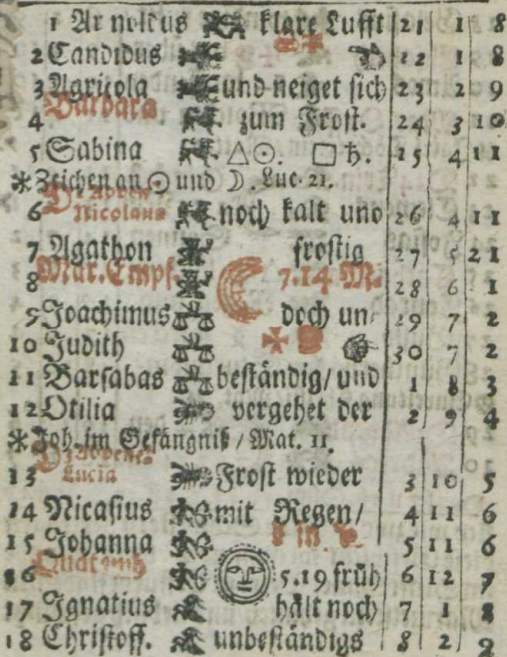 1 Arnoldus klare Lufft 21 1 8
2 Candidus 22 1 8
3 Agricola und neiget sich 23 2 9
4 Barbara zum Frost. 24 3 10
5 Sabina △☉. □♄. 25 4 11
* Zeichen an ☉ und ☽. Luc. 21.
6 Nicolaus noch kalt und 26 4 11
7 Agathon frostig 27 5 21
8 Mar. Empf. 7.14 M. 28 6 1
9 Joachimus doch un- 29 7 2
10 Judith 30 7 2
11 Barsabas beständig / und 1 8 3
12 Otilia vergehet der 2 9 4
* Joh. im Gefängniß / Mat. 11.
13 Lucia Frost wieder 3 10 5
14 Nicasius mit Regen / 4 11 6
15 Johanna 5 11 6
16 Quatemb 5.19 früh 6 12 7
17 Ignatius hält noch 7 1 8
18 Christoff. unbeständigs 8 2 9